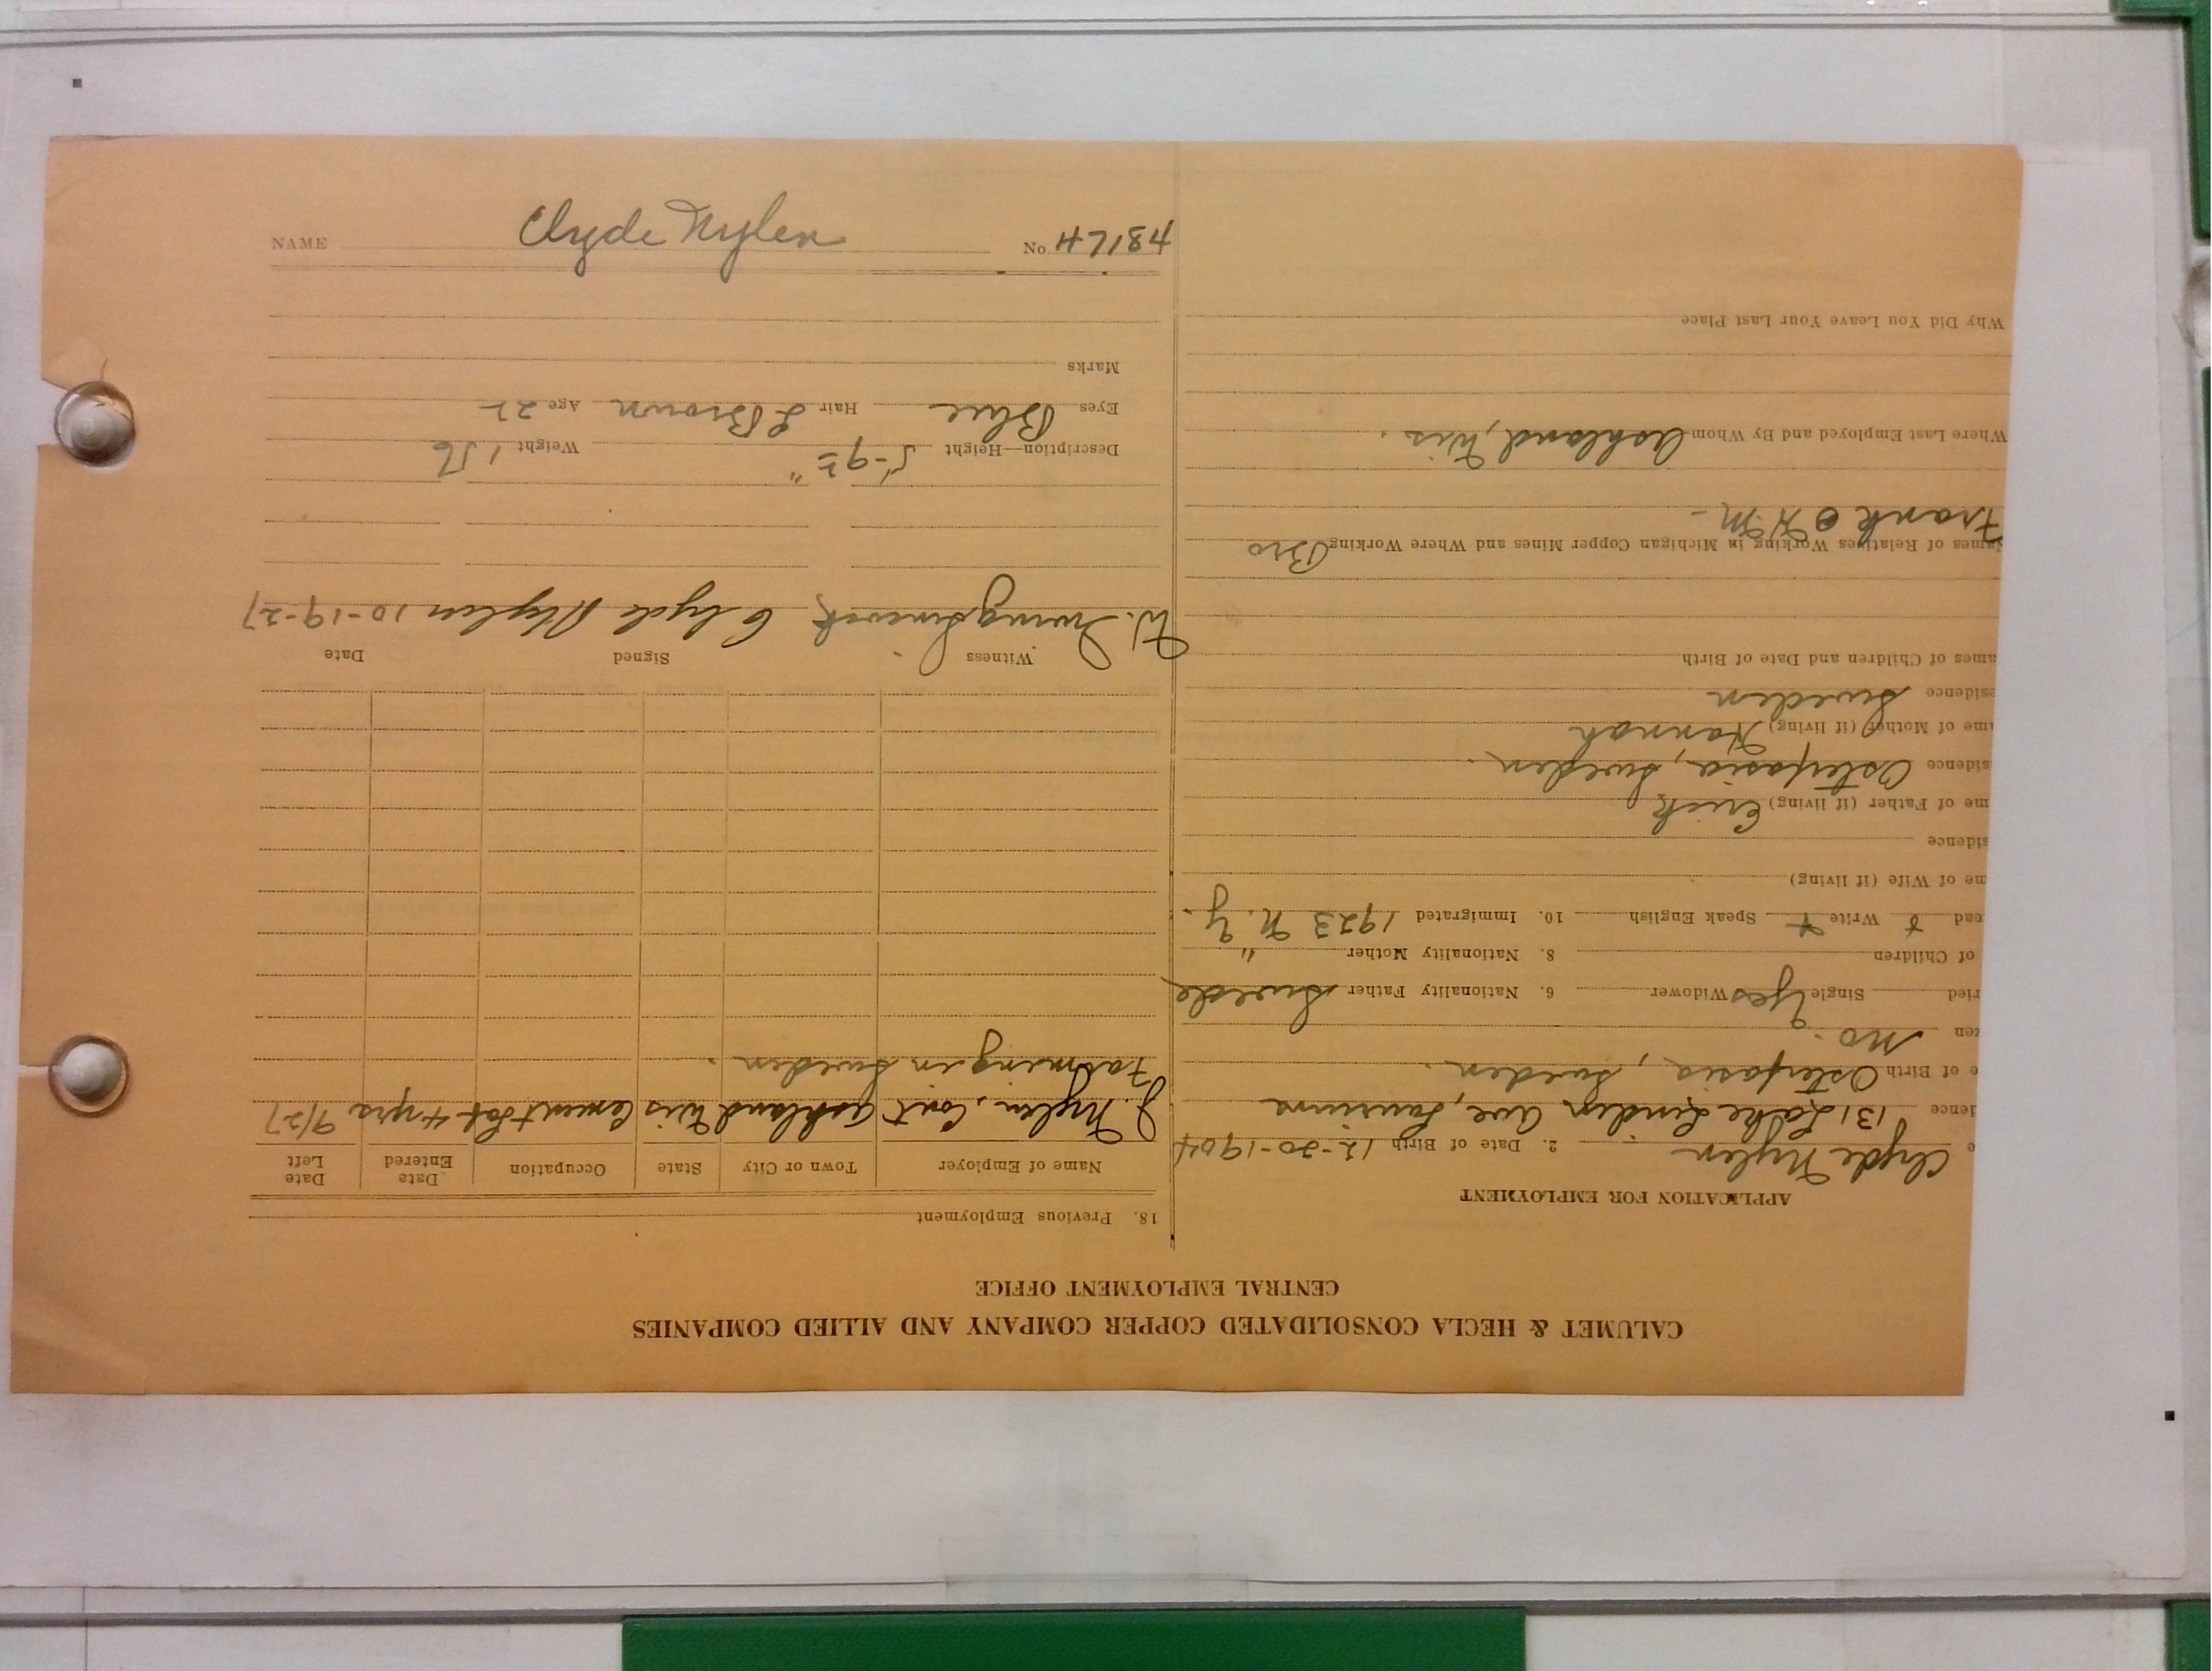 NAME Clyde Nylen No. H7184
CALUMET & HECLA CONSOLIDATED COPPER COMPANY AND ALLIED COMPANIES
CENTRAL EMPLOYMENT OFFICE
APPLICATION FOR EMPLOYMENT
e Clyde Nylen 2. Date of Birth 12-20-1904
dence 131 Lake Linden Ave, Laurium
e of Birth Sweden.
zen No.
ried Single Yes Widower 6. Nationality Father Swede
of Children 8. Nationality Mother "
ead Write Speak English 10. Immigrated 1923 N.Y.
me of Wife (if living)
sidence
me of Father (if living) Erick
sidence Sweden.
ame of Mother (if living) Hannah
esidence Sweden
ames of Children and Date of Birth
Names of Relatives Working in Michigan Copper Mines and Where Working Bro
Frank
Where Last Employed and By Whom Ashland, Wis.
Why Did You Leave Your Last Place
18. Previous Employment
Name of Employer Town or City State Occupation Date Entered Date Left
J. Nylen, Cont Ashland Wis Cement Lab 4 yrs 9/27
Farming in Sweden.
Witness Signed Date
W. Clyde Nylen 10-19-27
Description—Height 5'-9½" Weight 156
Eyes Blue Hair L Brown Age 22
Marks